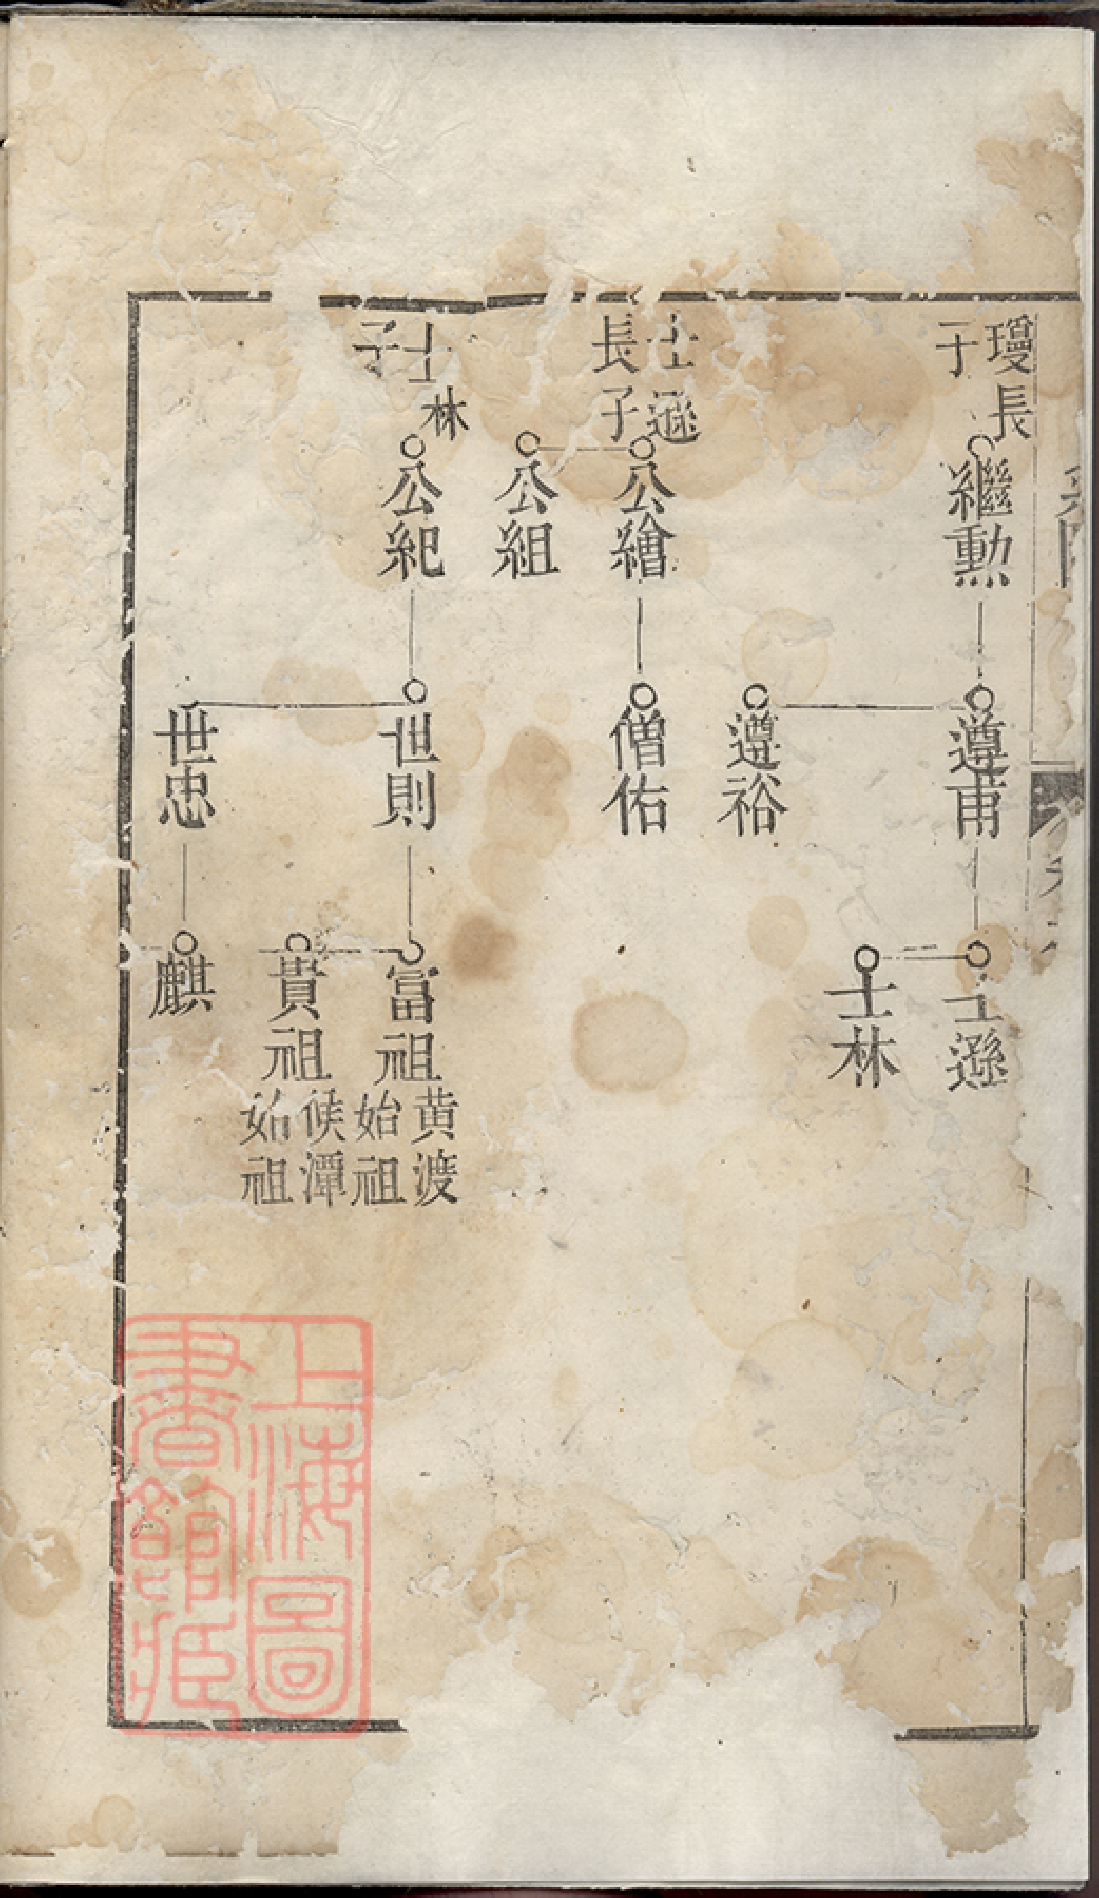 瓊長
子
繼勲
遵甫
士遜
士林
遵裕
士遜
長子
公繪
僧佑
公組
士林
子
公紀
世則
富祖
黄渡
始祖
貴祖
侯潭
始祖
世忠
麒
上海圖
書館藏